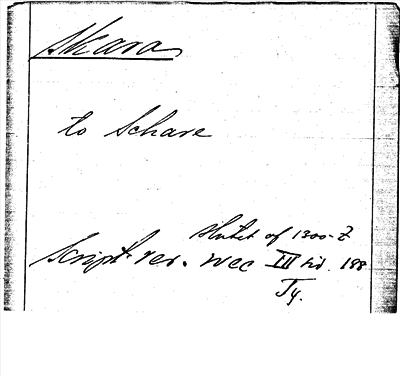 Skara
to Schare
slutet af 1300-t
Script. rer. svec III hd. 188
Ty.